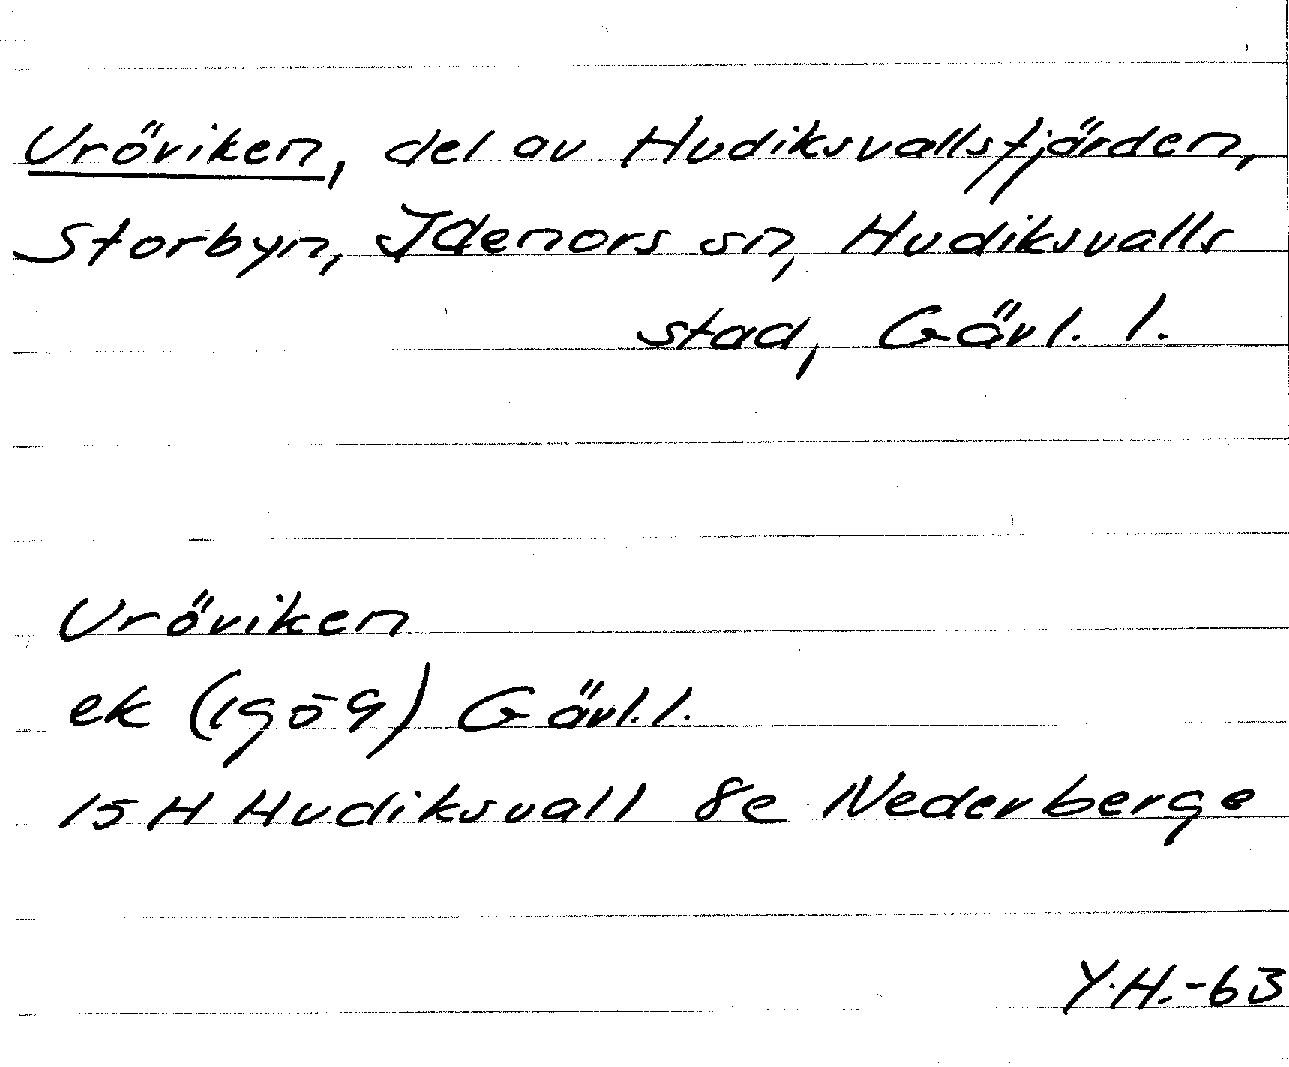 Uröviken, del av Hudiksvallsfjärden,
Storbyn, Idenors sn, Hudiksvalls
stad, Gävl. l.
Uröviken
ek (1909) Gävl. l.
15 H Hudiksvall 8e Nederberge
Y.H.-63